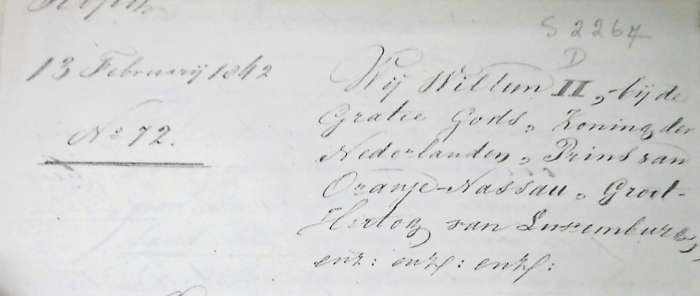 S 2267
D
13 Februarij 1842
No 72.
Wij Willem II, bij de
Gratie Gods, Koning der
Nederlanden, Prins van
Oranje-Nassau, Groot-
Hertog van Luxemburg,
enz: enz: enz: